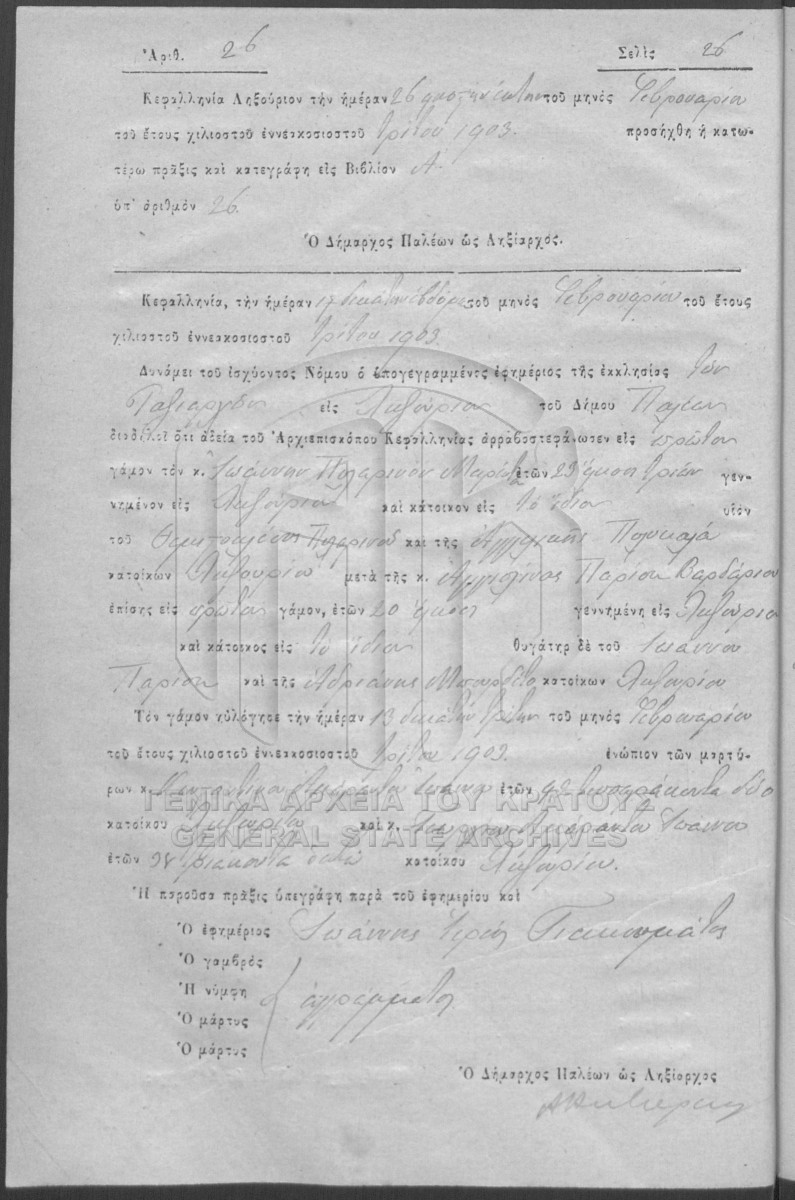 Ἀριθ. 26 Σελὶς 26
Κεφαλληνία Ληξούριον τὴν ἡμέραν 26 τοῦ μηνὸς Φεβρουαρίου
τοῦ ἔτους χιλιοστοῦ ἐννεακοσιοστοῦ τρίτου 1903. προσήχθη ἡ κατω-
τέρω πρᾶξις καὶ κατεγράφη εἰς Βιβλίον Α.
ὑπ' ἀριθμὸν 26.
Ὁ Δήμαρχος Παλέων ὡς Ληξίαρχος.
Κεφαλληνία, τὴν ἡμέραν 17 δεκάτην ἑβδόμην τοῦ μηνὸς Φεβρουαρίου τοῦ ἔτους
χιλιοστοῦ ἐννεακοσιοστοῦ τρίτου 1903.
Δυνάμει τοῦ ἰσχύοντος Νόμου ὁ ὑπογεγραμμένος ἐφημέριος τῆς ἐκκλησίας τῶν
Ταξιαρχῶν εἰς Ληξούριον τοῦ Δήμου Παλέων
διαδηλοῖ ὅτι ἀδείᾳ τοῦ Ἀρχιεπισκόπου Κεφαλληνίας ἀρραβοστεφάνωσεν εἰς πρῶτον
γάμον τὸν κ. Ἰωάννην ἐτῶν 23 εἴκοσι τριῶν γεν-
νημένον εἰς Ληξούριον καὶ κάτοικον εἰς τὸ ἴδιον υἱὸν
τοῦ καὶ τῆς Ἀγγελικῆς
κατοίκων Ληξουρίου μετὰ τῆς κ. Ἀγγελίνας Παρίση Βαρδάρου
ἐπίσης εἰς πρῶτον γάμον, ἐτῶν 20 εἴκοσι γεννημένη εἰς Ληξούριον
καὶ κάτοικος εἰς τὸ ἴδιον θυγάτηρ δὲ τοῦ Ἰωάννου
Παρίση καὶ τῆς Ἀδριάνης κατοίκων Ληξουρίου
Τὸν γάμον ηὐλόγησε τὴν ἡμέραν 13 δεκάτην τρίτην τοῦ μηνὸς Φεβρουαρίου
τοῦ ἔτους χιλιοστοῦ ἐννεακοσιοστοῦ τρίτου 1903. ἐνώπιον τῶν μαρτύ-
ρων κ. Ἰωάννου ἐτῶν 42 τεσσαράκοντα δύο
κατοίκου Ληξουρίου καὶ κ. Ἰωάννου
ἐτῶν 38 τριάκοντα ὀκτὼ κατοίκου Ληξουρίου.
ΓΕΝΙΚΑ ΑΡΧΕΙΑ ΤΟΥ ΚΡΑΤΟΥΣ
GENERAL STATE ARCHIVES
Ἡ παροῦσα πρᾶξις ὑπεγράφη παρὰ τοῦ ἐφημερίου καὶ
Ὁ ἐφημέριος Ἰωάννης Ἱερεὺς
Ὁ γαμβρὸς
Ἡ νύμφη ἀγράμματοι
Ὁ μάρτυς
Ὁ μάρτυς
Ὁ Δήμαρχος Παλέων ὡς Ληξίαρχος